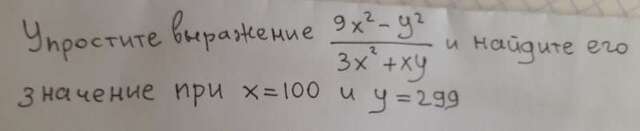 Упростите выражение (9x² - y²)/(3x² + xy) и найдите его
значение при x=100 и y=299